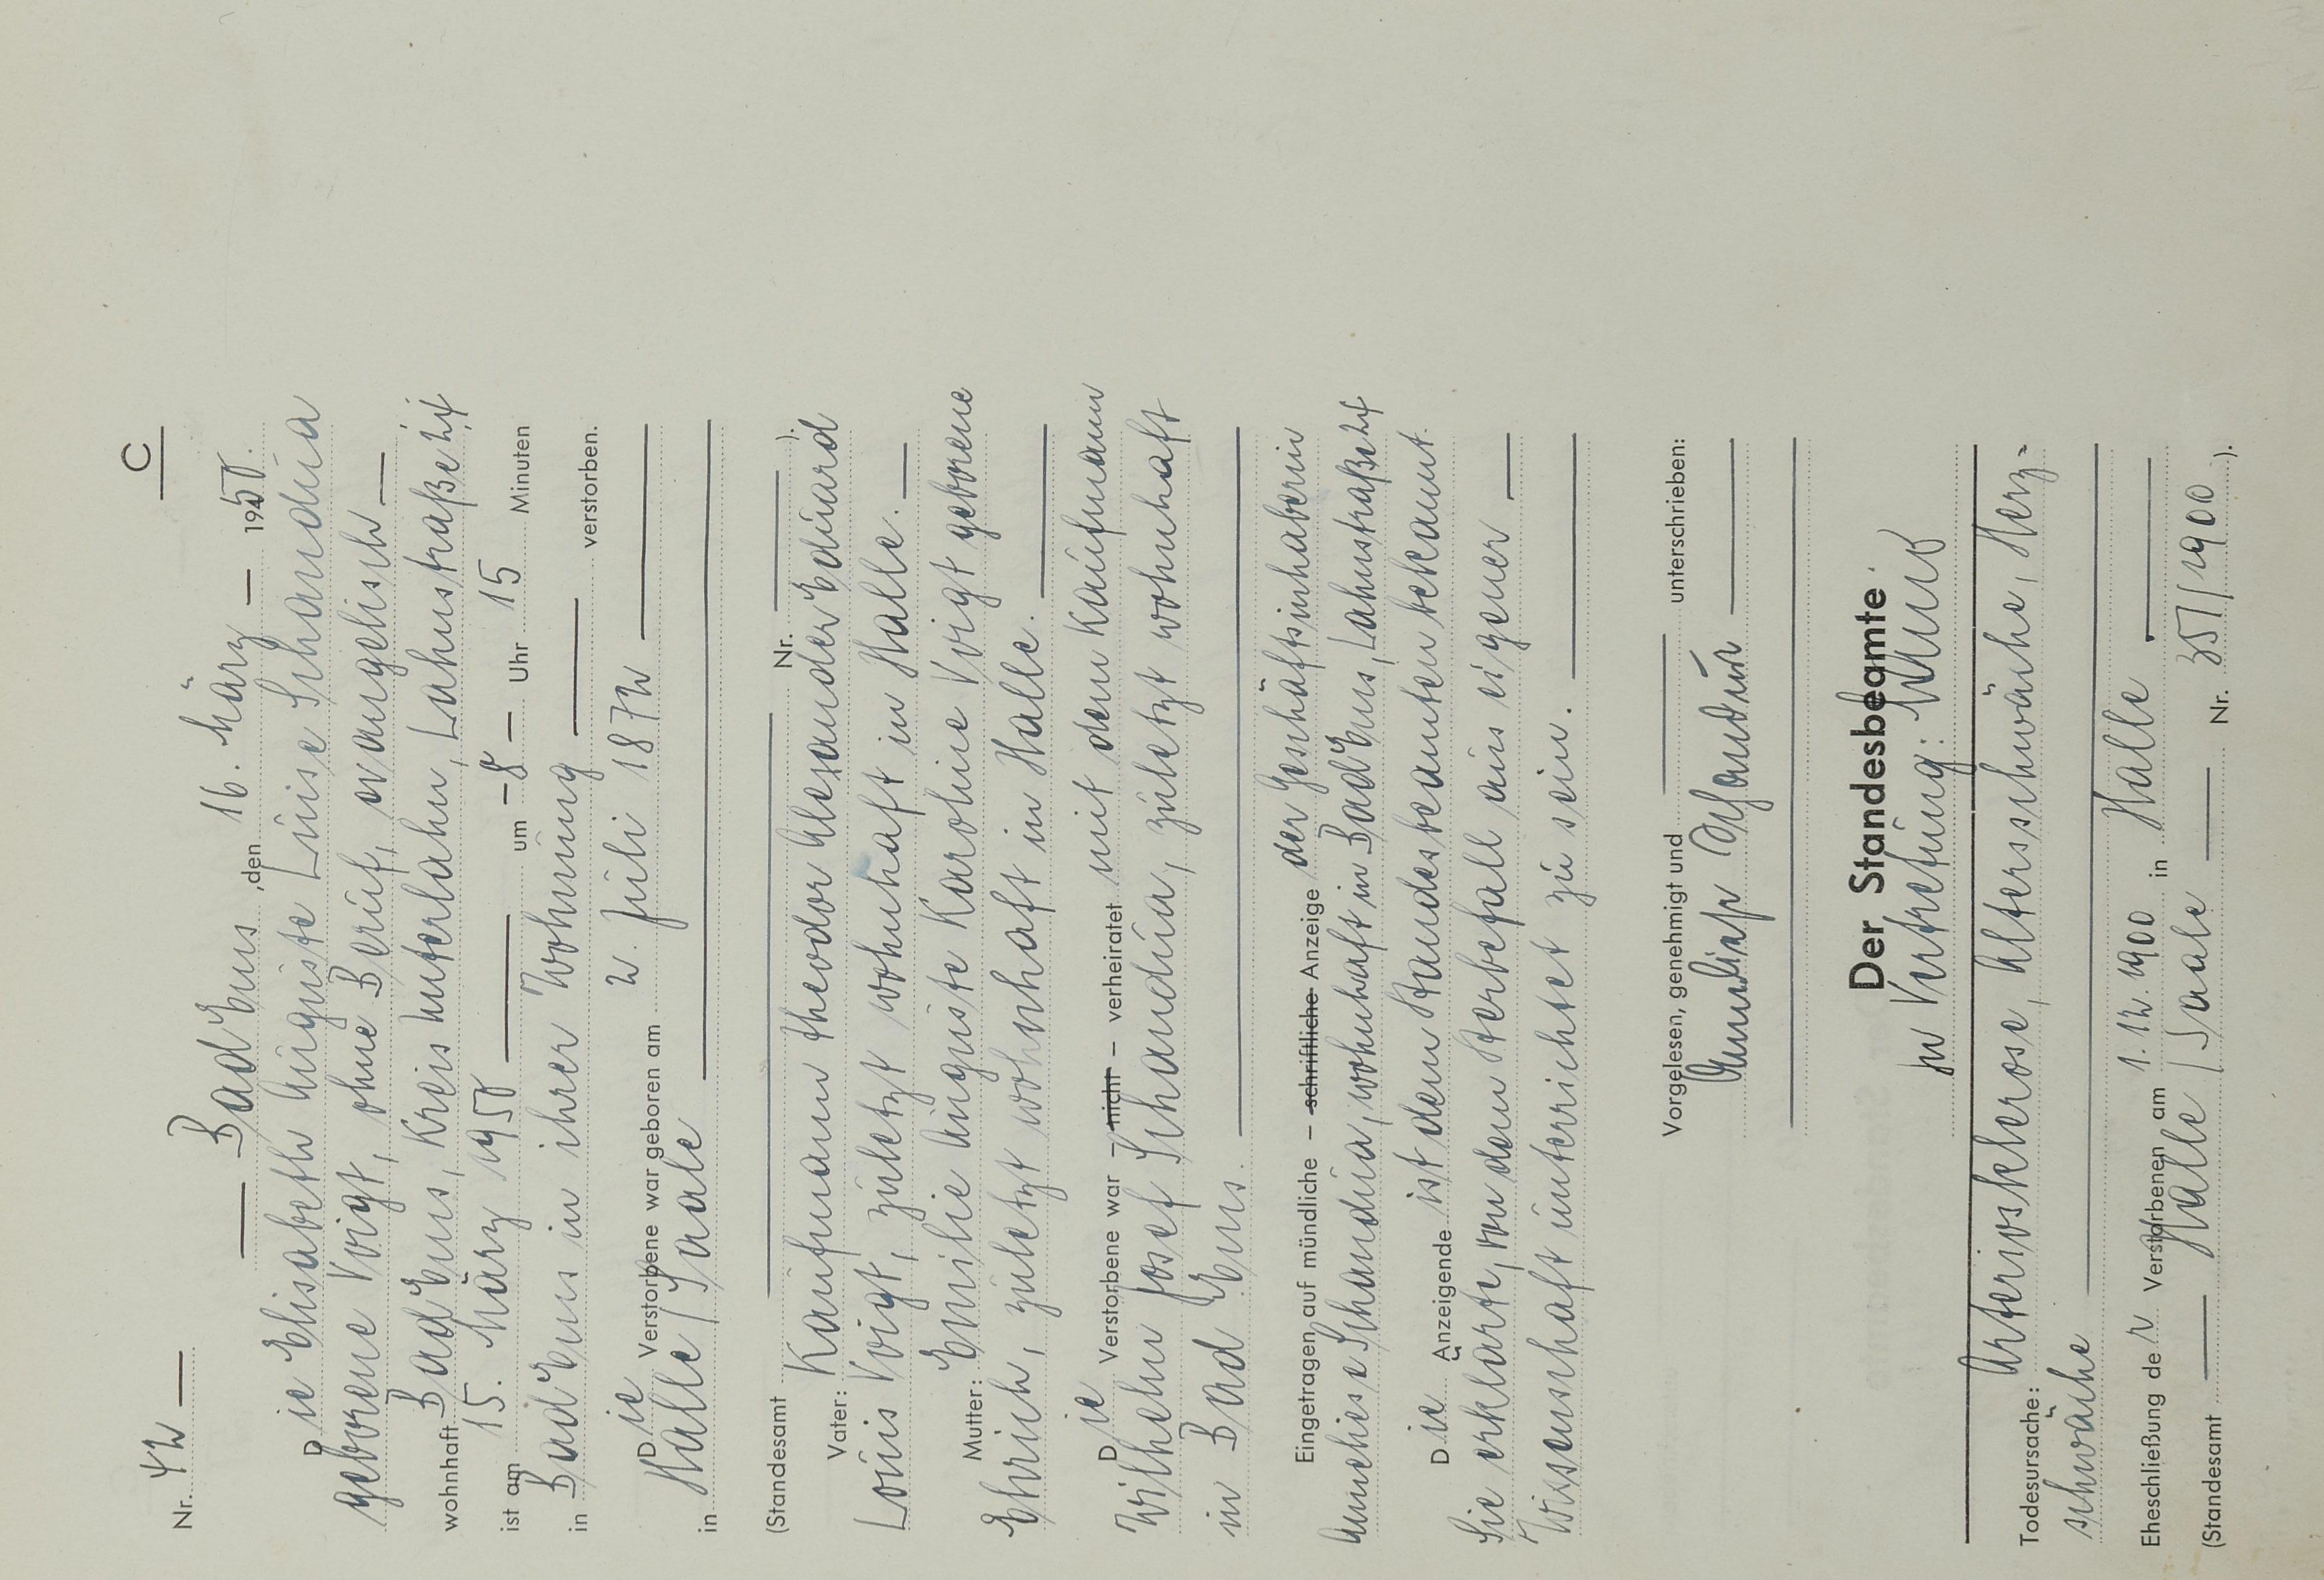 C
Nr. 42
Bad Ems, den 16. März 1950.
Die Elisabeth Auguste Luise Schandua
geborene Voigt, ohne Beruf, evangelisch
wohnhaft Bad Ems, Kreis Unterlahn, Lahnstraße
ist am 15. März 1950 um 8 Uhr 15 Minuten
in Bad Ems in ihrer Wohnung verstorben.
Die Verstorbene war geboren am 2. Juli 1872
in Halle / Saale
(Standesamt Nr. ).
Vater: Kaufmann Theodor Alexander Eduard
Louis Voigt, zuletzt wohnhaft in Halle.
Mutter: Emilie Auguste Karoline Voigt geborene
Ehrich, zuletzt wohnhaft in Halle.
Die Verstorbene war – nicht – verheiratet mit dem Kaufmann
Wilhelm Josef Schandua, zuletzt wohnhaft
in Bad Ems.
Eingetragen auf mündliche – schriftliche Anzeige der Geschäftsinhaberin
Anneliese Schandua, wohnhaft in Bad Ems, Lahnstraße
Die Anzeigende ist dem Standesbeamten bekannt.
Sie erklärte, von dem Sterbefall aus eigener
Wissenschaft unterrichtet zu sein.
Vorgelesen, genehmigt und unterschrieben:
Anneliese Schandua
Der Standesbeamte
In Vertretung:
Todesursache: Arteriosklerose, Altersschwäche, Herz-
schwäche
Eheschließung der Verstorbenen am 1.12.1900 in Halle
(Standesamt Halle / Saale Nr. 351/1900 ).